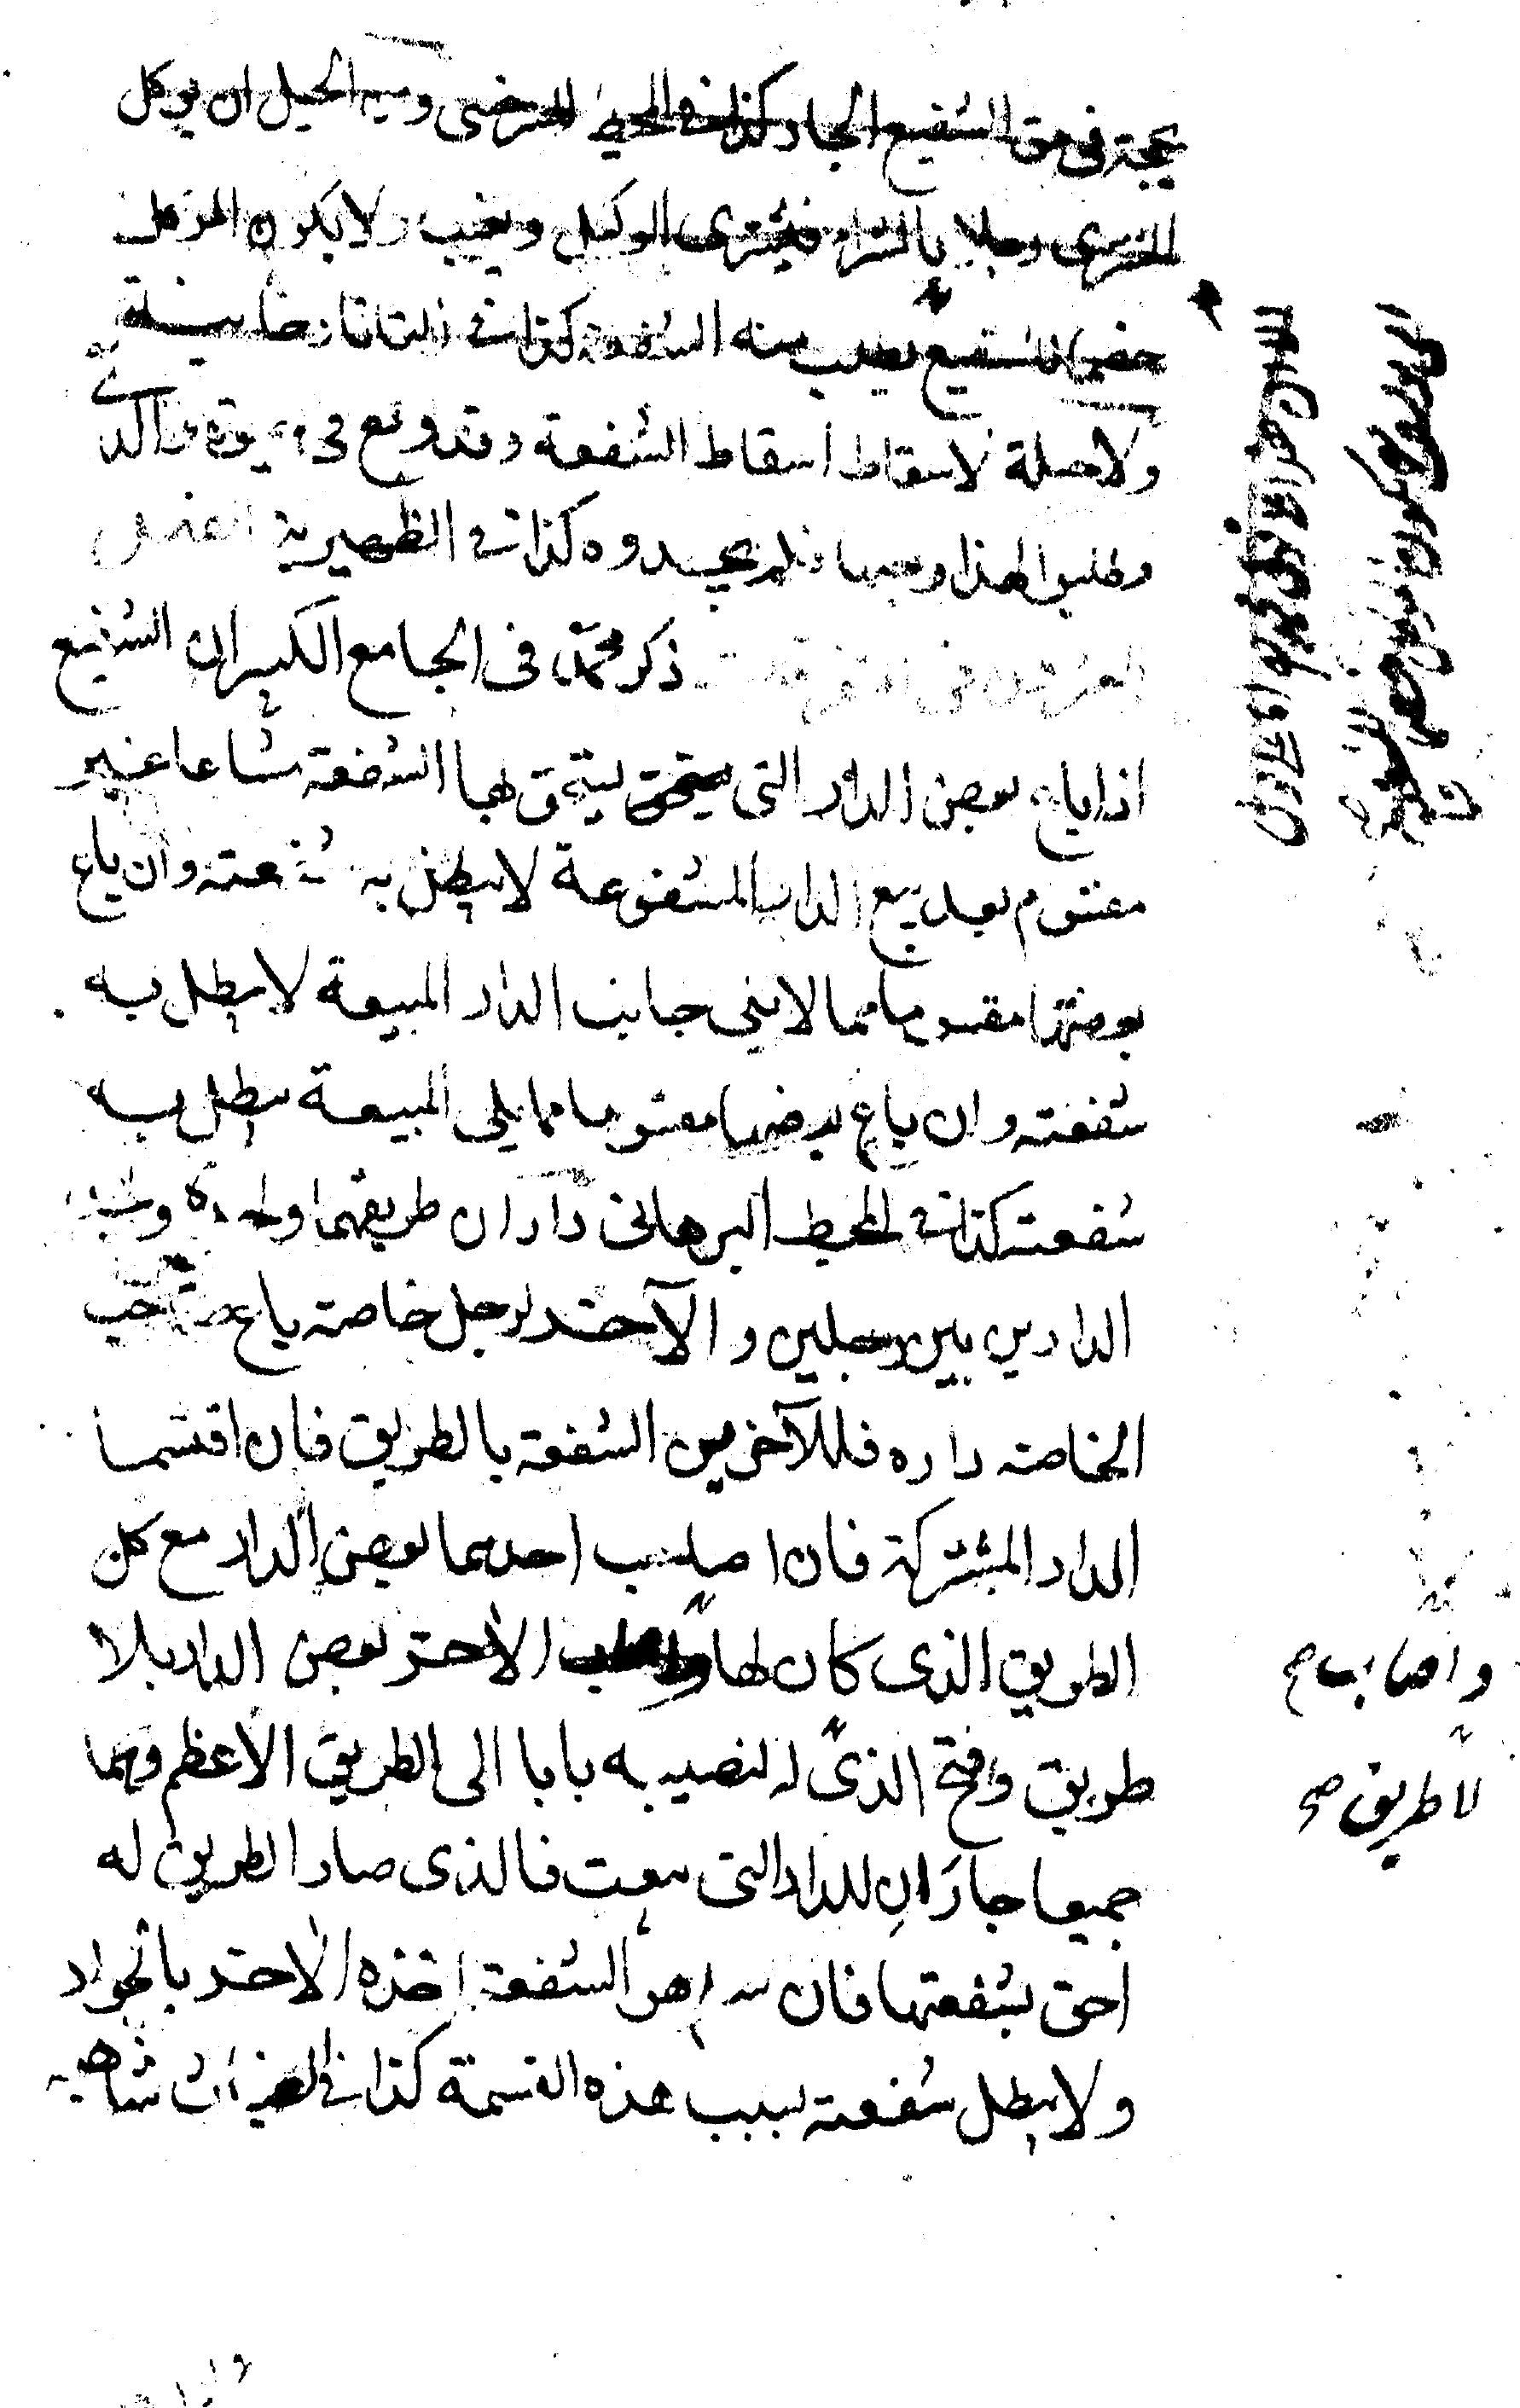 بحجة فى حق الشفيع الجار كذا فى المحيط السرخسى ومن الحيل ان يوكل
المشترى رجلا بالشراء فيشترى الوكيل ويغيب ولا يكون الموكل
خصما للشفيع يطلب منه الشفعة كذا فى التاتارخانية
ولا حيلة لاسقاط اسقاط الشفعة وقد وقع فى
وطلبوا لهذا وجها فلم يجدوه كذا فى الظهيرية الفصل
العشرون فى المتفرقات ذكر محمد فى الجامع الكبير ان الشفيع
اذا باع بعض الدار التى يستحق بها الشفعة شاعا غير
مقسوم بعد بيع الدار المشفوعة لا يبطل به شفعته وان باع
بعضها مقسوما مما لا يلى جانب الدار المبيعة لا يبطل به
شفعته وان باع بعضها مقسوما مما يلى المبيعة يبطل به
شفعته كذا فى المحيط البرهانى داران طريقهما واحدة
الدارين بين رجلين والآخر لرجل خاصة باع صاحب
الخاصة داره فللآخرين الشفعة بالطريق فان اقتسما
الدار المشتركة فان اصاب احدهما بعض الدار مع كل
الطريق الذى كان لها الآخر بعض الدار بلا
طريق وفتح الذى له لنصيبه بابا الى الطريق الاعظم وهما
جميعا جاران للدار التى بيعت فالذى صار الطريق له
احق بشفعتها فان سلم هو الشفعة اخذه الآخر بالجوار
ولا يبطل شفعته بسبب هذه القسمة كذا فى
واصاب صح
لا طريق صح